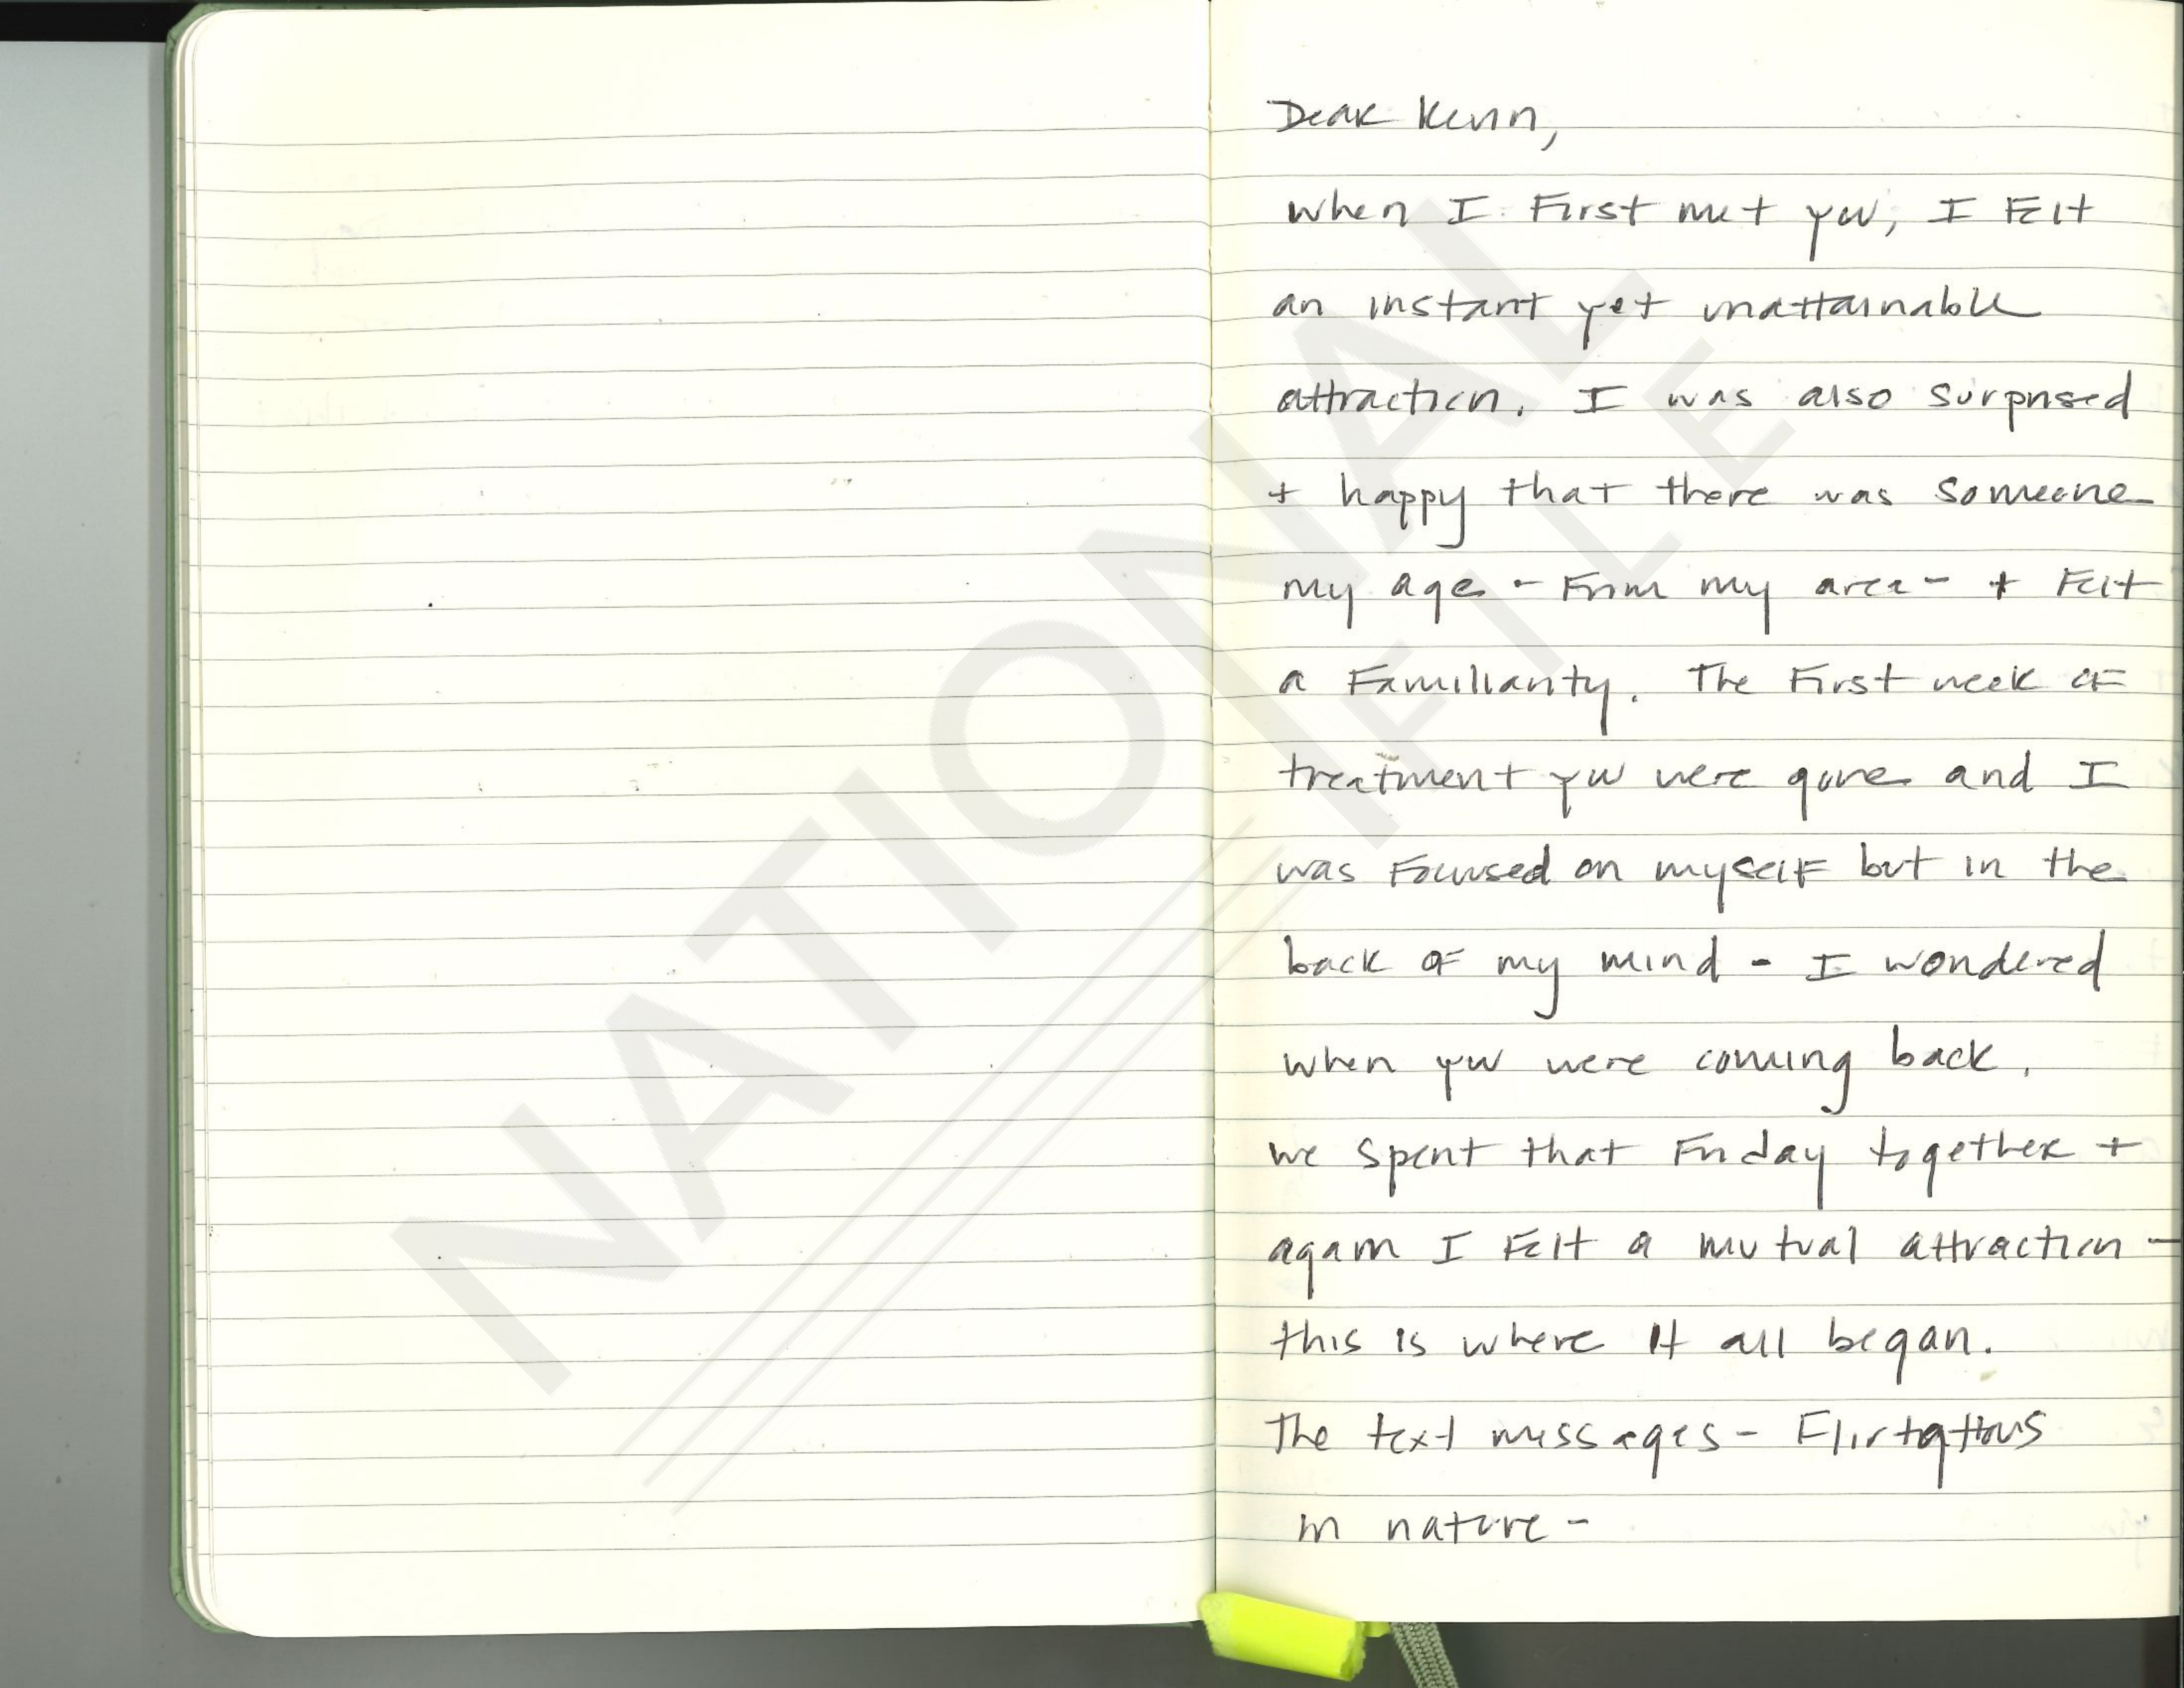 Dear
when I first met you, I felt
an instant yet unattainable
attraction. I was also surprised
+ happy that there was someone
my age - From my area - + Felt
a Familiarity. The First week of
treatment you were gone and I
was Focused on myself but in the
back of my mind - I wondered
when you were coming back.
we spent that Friday together +
again I Felt a mutual attraction -
this is where it all began.
The text messages - Flirtatious
in nature -
NATIONAL
FILE